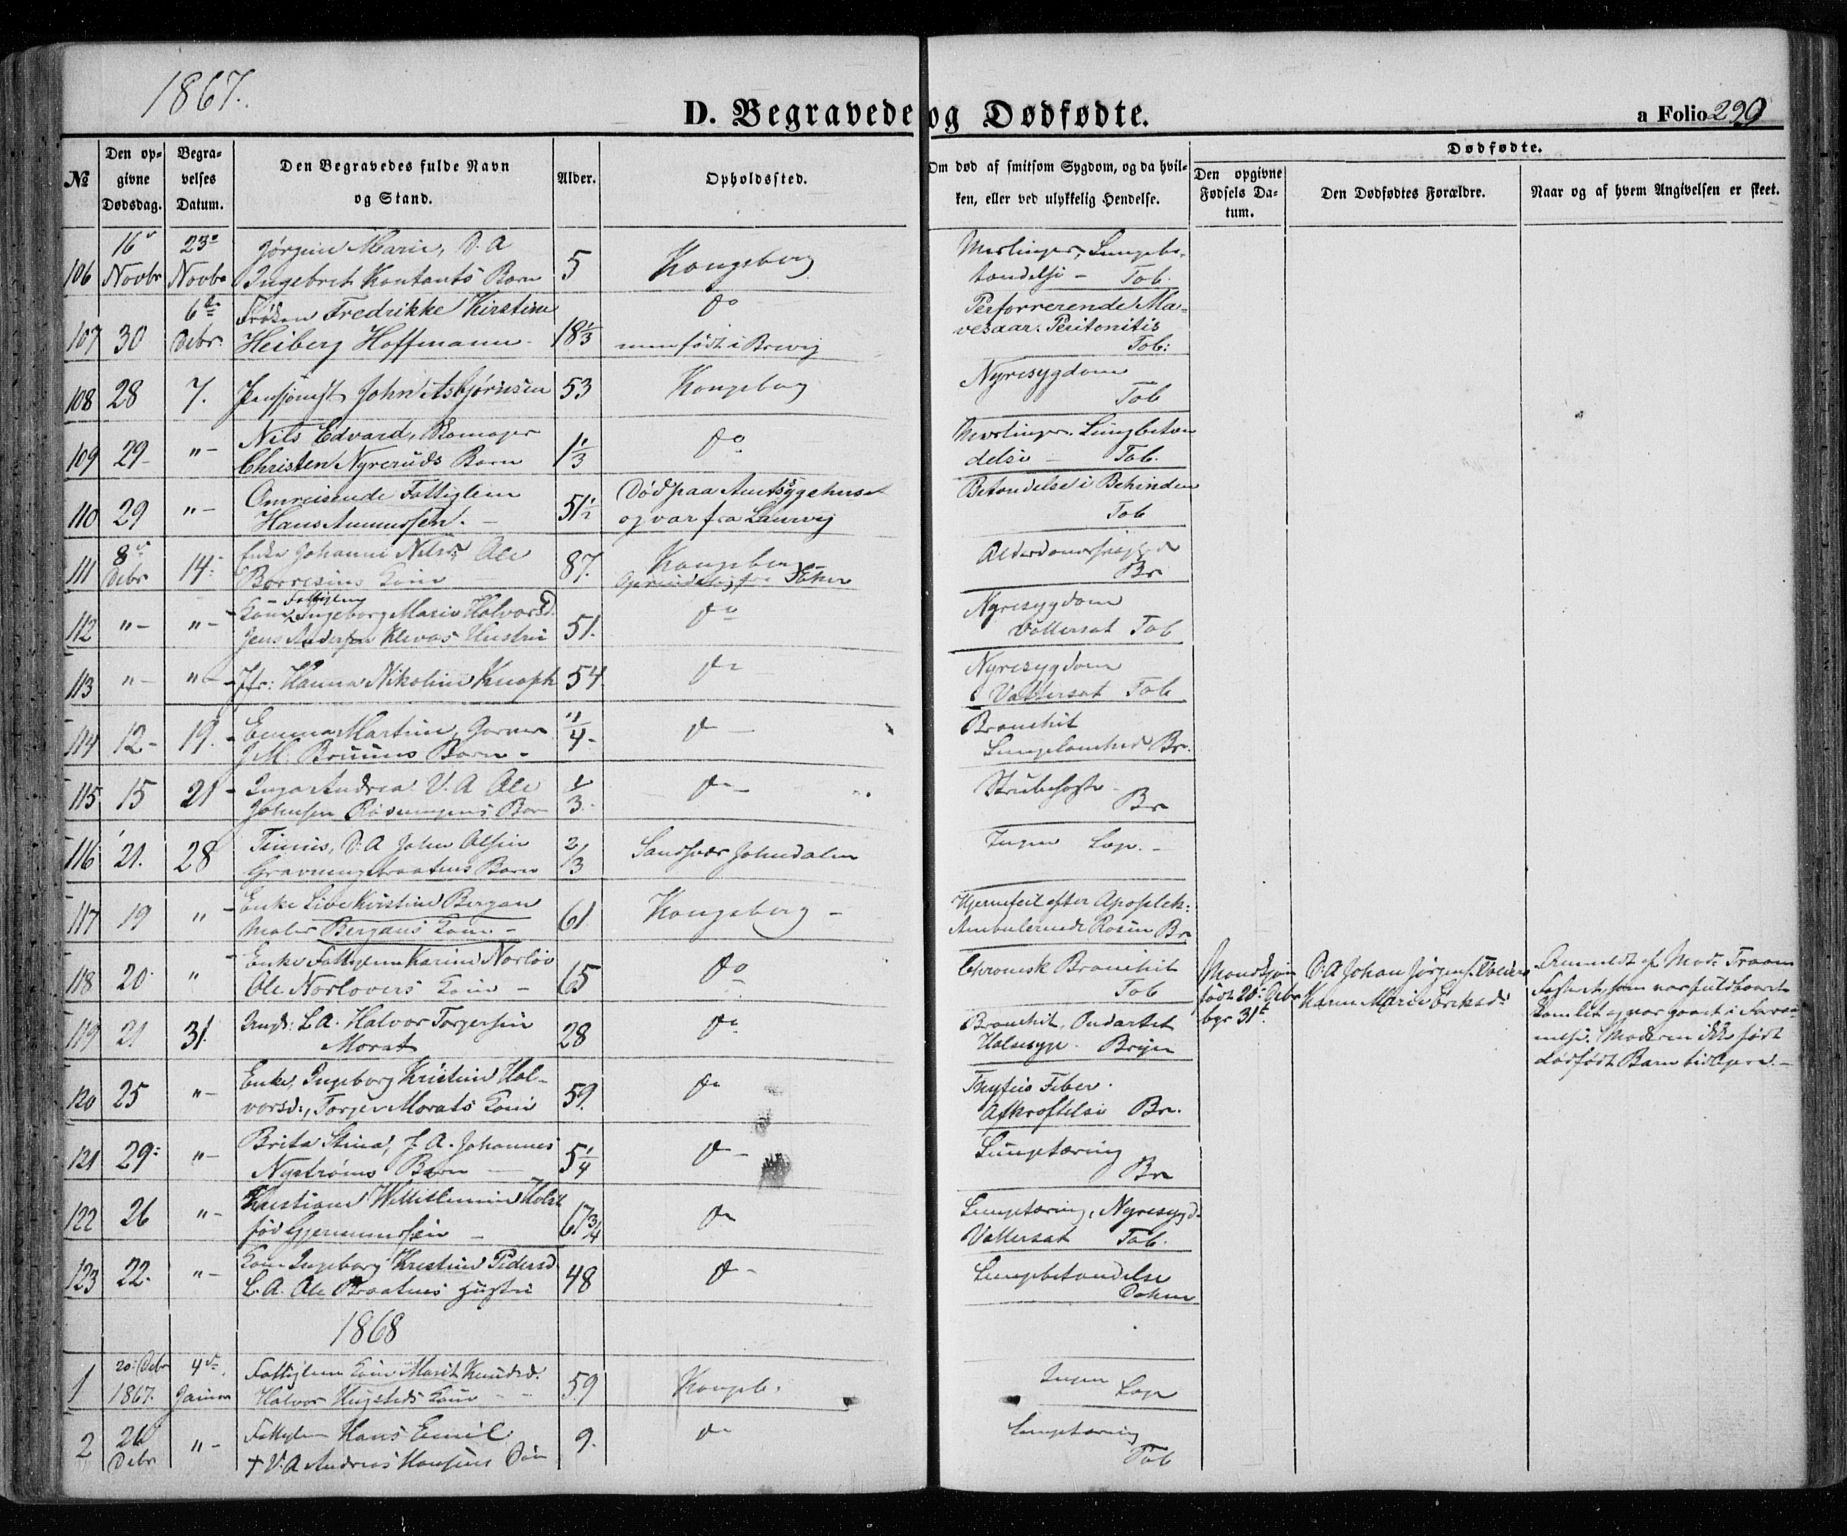 1867.
D. Begravede og Dødfødte.
a Folio 290
№
Den opgivne Dødsdag.
Begravelses Datum.
Den Begravedes fulde Navn og Stand.
Alder.
Opholdssted.
Om død af smitsom Sygdom, og da hvilken, eller ved ulykkelig Hendelse.
Dødfødte.
Den opgivne Fødsels Datum.
Den Dødfødtes Forældre.
Naar og af hvem Angivelsen er skeet.
106 16de Novbr 23de Novbr Jørgine Marie, D. A Ingebret Kontants Barn 5 Kongsberg Meslinger, Lungebetændelse – Tob.
107 30 6te Debr Frøken Fredrikke Kirstine Heiberg Hoffmann 18 1/3 do men født i Brevig Perforrerende Mavesaar. Peritonitis Tob:
108 28 7. John Asbjørnsen 53 Kongsberg Nyresygdom Tob
109 29 "– Nils Edvard, Christen Nyreruds Barn 1 1/3 do Meslinger. Lungbetændelse – Tob.
110 29 "– Omreisende Fattiglem Hans Amundsen. 51 1/2 Død paa Amtssygehuset og var fra Laurvig Betændelse i Tob
111 8de Debr 14 Enke Johanne Nilsd. Ole Borresens Kone 87. Kongsberg fra Eker Br
112 "– "– Kone Fattiglem Ingeborg Marie Halvorsd. Jens Andersen Klevas Hustru 51. do Nyresygdom Vattersot Tob
113 "– "– Jfr: Hanna Nikoline Knoph 54. do Nyresygdom Vattersot Tob
114 12– 19. Emma Martine, Garver J. M. Bruuns Barn – 11/4 do Bronchit Br.
115 15 21 Inga Andrea V. A Ole Johnsen Barn 1/3 do Strubehoste – Br
116 21. 28 Tinius, D. A John Olsen Barn 2/3 Sandsvær Johndalen Ingen Læge. –
117 19 " Enke Live Kristine Bergan Maler Bergans Kone – 61 Kongsberg – Hjernefeil efter Apoplek: Ambulerende Rosen Br
118 20 " Enke Fattiglem Karine Norløv Ole Norløvers Kone – 65 do Chronisk Bronchit Tob
Mandkjøn født 25de Debr bgr 31te
D. A Johan Jørgensen Karen Marie Eriksd:
Anmeldt af Mad. Fraam Fosteret, som var fuldbaaret
Moderen ikke født dødfødt Barn tidligere. –
119 21 31. Ungk: L. A. Halvor Torgersen Morat 28 do Bronchit, Ondartet Halssyge. Br
120 25 "– Enke, Ingeborg Kristine Halvorsd:, Torger Morats Kone 59. do Tyfus Feber. Afkræftelse Br.
121 29: "– Brita Stina, J. A. Johannes Nystrøms Barn 5 1/4 do Lungetæring Br
122 26 "– Kristiane Willhelmine Holst fød Gjermundsen – 67 3/4 do Lungetæring, Nyresygd. Vattersot Tob.
123 22. "– Kone Ingeborg Kristine Pedersd L. A. Ole Braatens Hustru 48 do – Lungebetændelse
1868
1 20: Debr 1867. 4de Januar Fattiglem Kone Marit Knudsd. Halvor Hugsteds Kone – 59 Kongsb. Ingen Læge
2 26 Debr "– Fattiglem Hans Emil + V. A Andreas Hansens Søn 9. do Lungetæring Tob